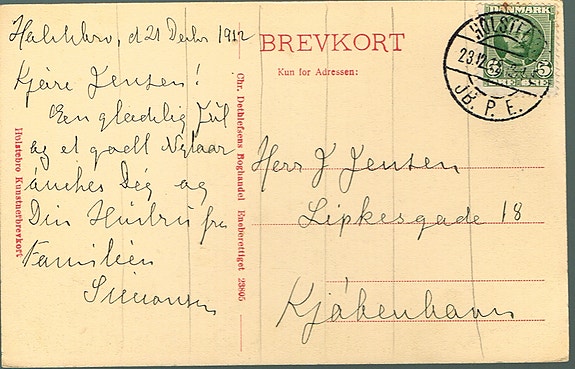 Holstebro, d 21 Decbr 1912
Kjære Jensen!
Een glædelig Jul
og et godt Nytaar
ønskes Dig og
Din Hustru fra
Familien
Simonsen
BREVKORT
Kun for Adressen:
Herr J Jensen
Lipkesgade 18
Kjøbenhavn
Chr. Dethlefsens Boghandel Eneberettiget 23805
Holstebro Kunstnerbrevkort
DANMARK
5
HOLSTEBRO
23.12
JB. P. E.